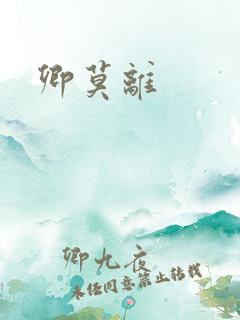 卿莫離
卿九夜
未经同意禁止转载